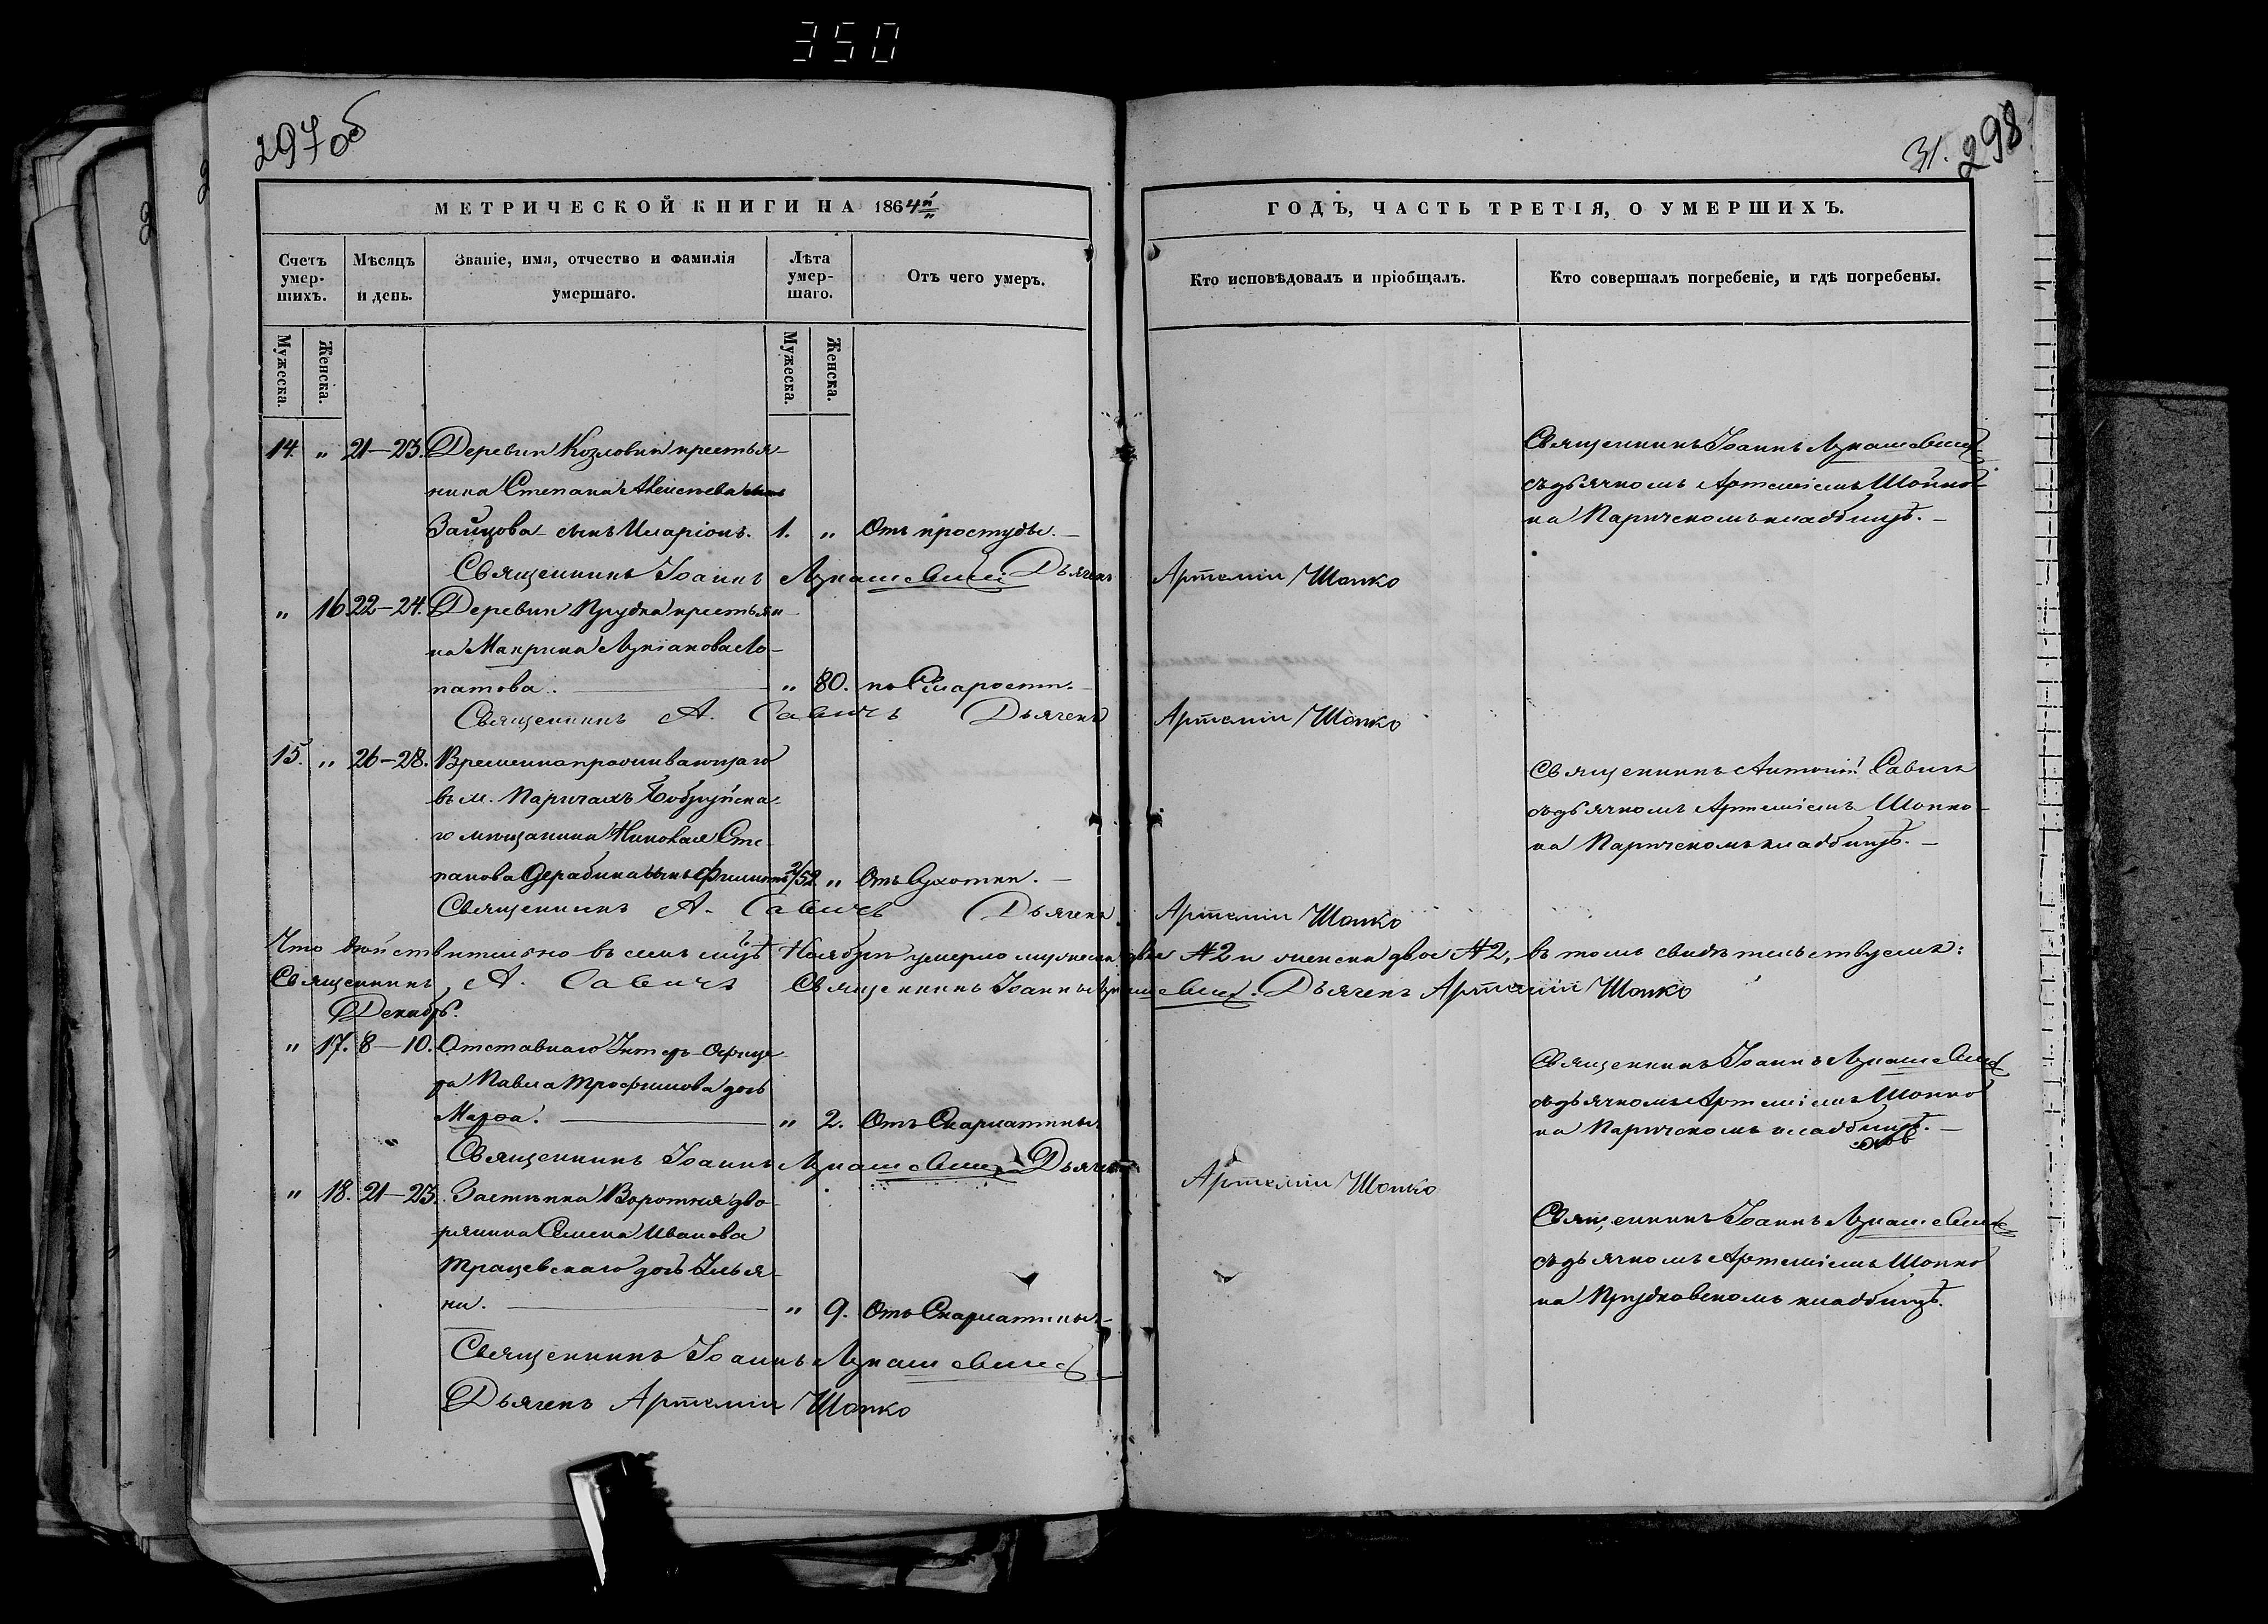 350
297об
31. 298
МЕТРИЧЕСКОЙ КНИГИ НА 1864й
ГОДѢ, ЧАСТЬ ТРЕТІЯ, О УМЕРШИХЪ.
Счетъ умер-шихъ.
Мѣсяцъ и день.
Званіе, имя, отчество и фамилія умершаго.
Лѣта умер-шаго.
Отъ чего умеръ.
Кто исповѣдовалъ и пріобщалъ.
Кто совершалъ погребеніе, и гдѣ погребены.
Мужеска.
Женска.
Мужеска.
Женска.
14. " 21-23. Деревни Козловки крестья-
нина Степана
Зайцова сынъ Иларіонъ. 1. " Отъ простуды.
Священникъ Іоаннъ Лукашевичъ
съ дьячкомъ Артеміемъ Шопко
на Паричскомъ кладбищѣ.
Священникъ Іоаннъ Лукашевичъ Дьячекъ Артемій Шопко
" 16. 22-24. Деревни Прудка крестьян-
ка Макрина Лукіанова Ло-
патова. " 80. по Старости.
Священникъ А. Савичъ Дьячекъ Артемій Шопко
15. " 26-28. Временнопроживающаго
въ м. Паричахъ Бобруйска-
го мѣщанина Николая Сте-
панова сынъ " Отъ Сухотки.
Священникъ Антоній Савичъ
съ дьячкомъ Артеміемъ Шопко
на Паричскомъ кладбищѣ.
Священникъ А. Савичъ Дьячекъ Артемій Шопко
Что дѣйствительно въ семъ мцѣ Ноябрѣ умерло мужеска двое №2 и женска двое №2, въ томъ свидѣтельствуемъ:
Священникъ А. Савичъ Священникъ Іоаннъ Лукашевичъ. Дьячекъ Артемій Шопко
Декабрь.
" 17. 8-10. Отставнаго Унтеръ-Офице-
ра Павла Трофимова дочь
Марѳа. " 2. Отъ Скарлатины.
Священникъ Іоаннъ Лукашевичъ
съ дьячкомъ Артеміемъ Шопко
на Паричскомъ кладбищѣ.
Священникъ Іоаннъ Лукашевичъ Дьячекъ Артемій Шопко
" 18. 21-23. Застѣнка Воротня дво-
рянина Семена Иванова
Трацевскаго дочь Улья-
на. " 9. Отъ Скарлатины.
Священникъ Іоаннъ Лукашевичъ
съ дьячкомъ Артеміемъ Шопко
на Прудковскомъ кладбищѣ.
Священникъ Іоаннъ Лукашевичъ
Дьячекъ Артемій Шопко